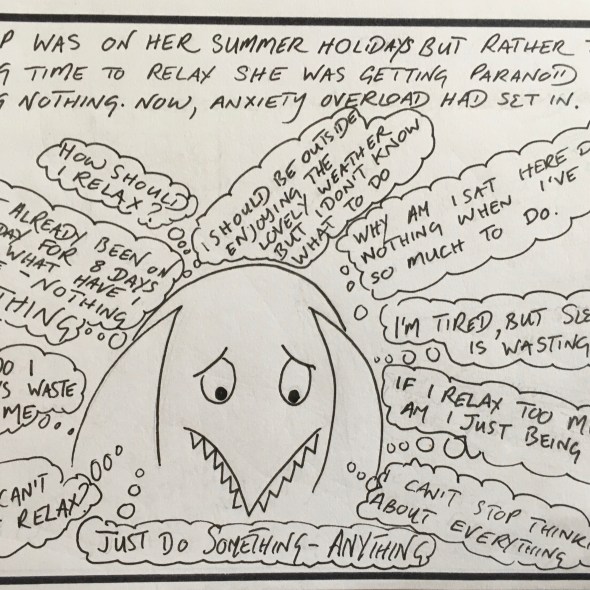 P WAS ON HER SUMMER HOLIDAYS BUT RATHER
G TIME TO RELAX SHE WAS GETTING PARANOID
G NOTHING. NOW, ANXIETY OVERLOAD HAD SET IN.
HOW SHOULD
I RELAX?
I SHOULD BE OUTSIDE
ENJOYING THE
LOVELY WEATHER
BUT I DON'T KNOW
WHAT TO DO
WHY AM I SAT HERE D
NOTHING WHEN I'VE
SO MUCH TO DO.
ALREADY BEEN ON
DAY FOR 8 DAYS
WHAT HAVE I
E - NOTHING
THING
I'M TIRED, BUT SLE
IS WASTING
DO I
S WASTE
ME
IF I RELAX TOO M
AM I JUST BEING
CAN'T
RELAX?
I CAN'T STOP THINKI
ABOUT EVERYTHING
JUST DO SOMETHING - ANYTHING